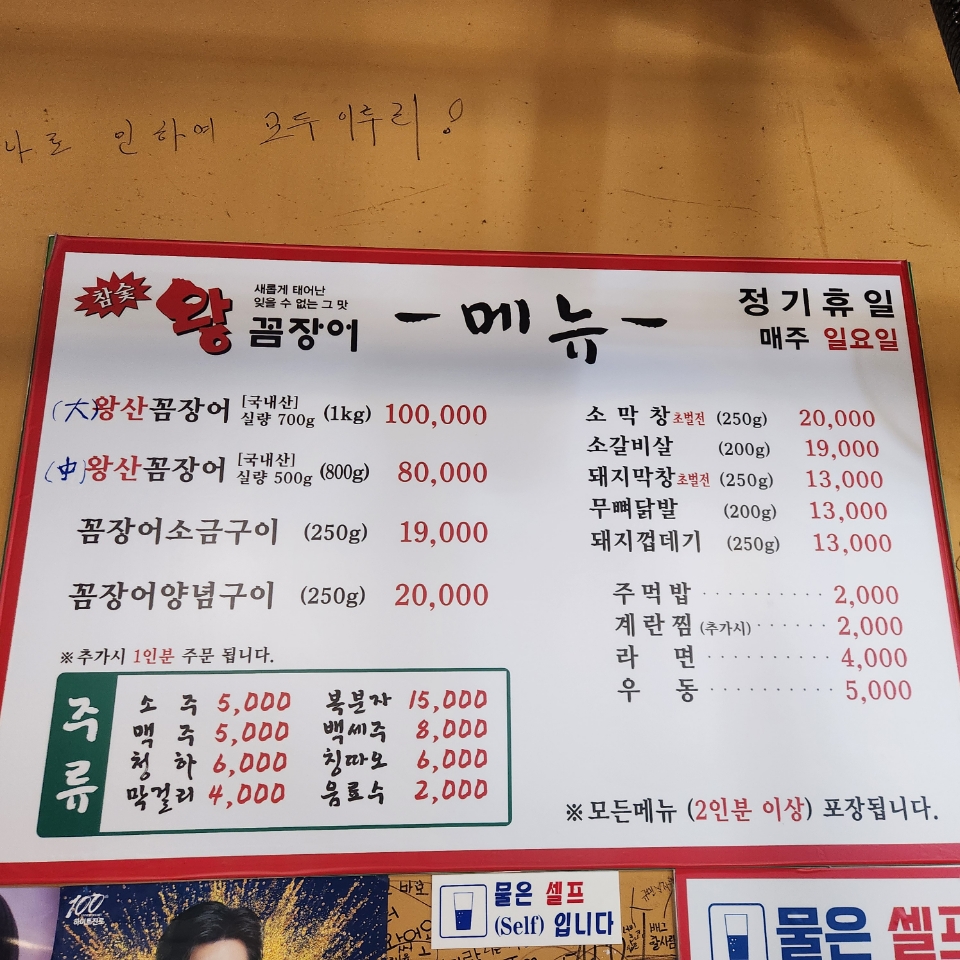 나로 인하여 모두 이루리!
참숯
왕
새롭게 태어난
잊을 수 없는 그 맛
꼼장어
- 메뉴 -
정기휴일
매주 일요일
(大)왕산꼼장어 [국내산] 실량 700g (1kg) 100,000
(中)왕산꼼장어 [국내산] 실량 500g (800g) 80,000
꼼장어소금구이 (250g) 19,000
꼼장어양념구이 (250g) 20,000
※추가시 1인분 주문 됩니다.
소 막 창 초벌전 (250g) 20,000
소갈비살 (200g) 19,000
돼지막창 초벌전 (250g) 13,000
무뼈닭발 (200g) 13,000
돼지껍데기 (250g) 13,000
주먹밥 ·········· 2,000
계란찜 (추가시) ······ 2,000
라 면 ·········· 4,000
우 동 ·········· 5,000
주류
소 주 5,000 복분자 15,000
맥 주 5,000 백세주 8,000
청 하 6,000 칭따오 6,000
막걸리 4,000 음료수 2,000
※모든메뉴 (2인분 이상) 포장됩니다.
100
하이트진로
물은 셀프
(Self) 입니다
물은 셀프